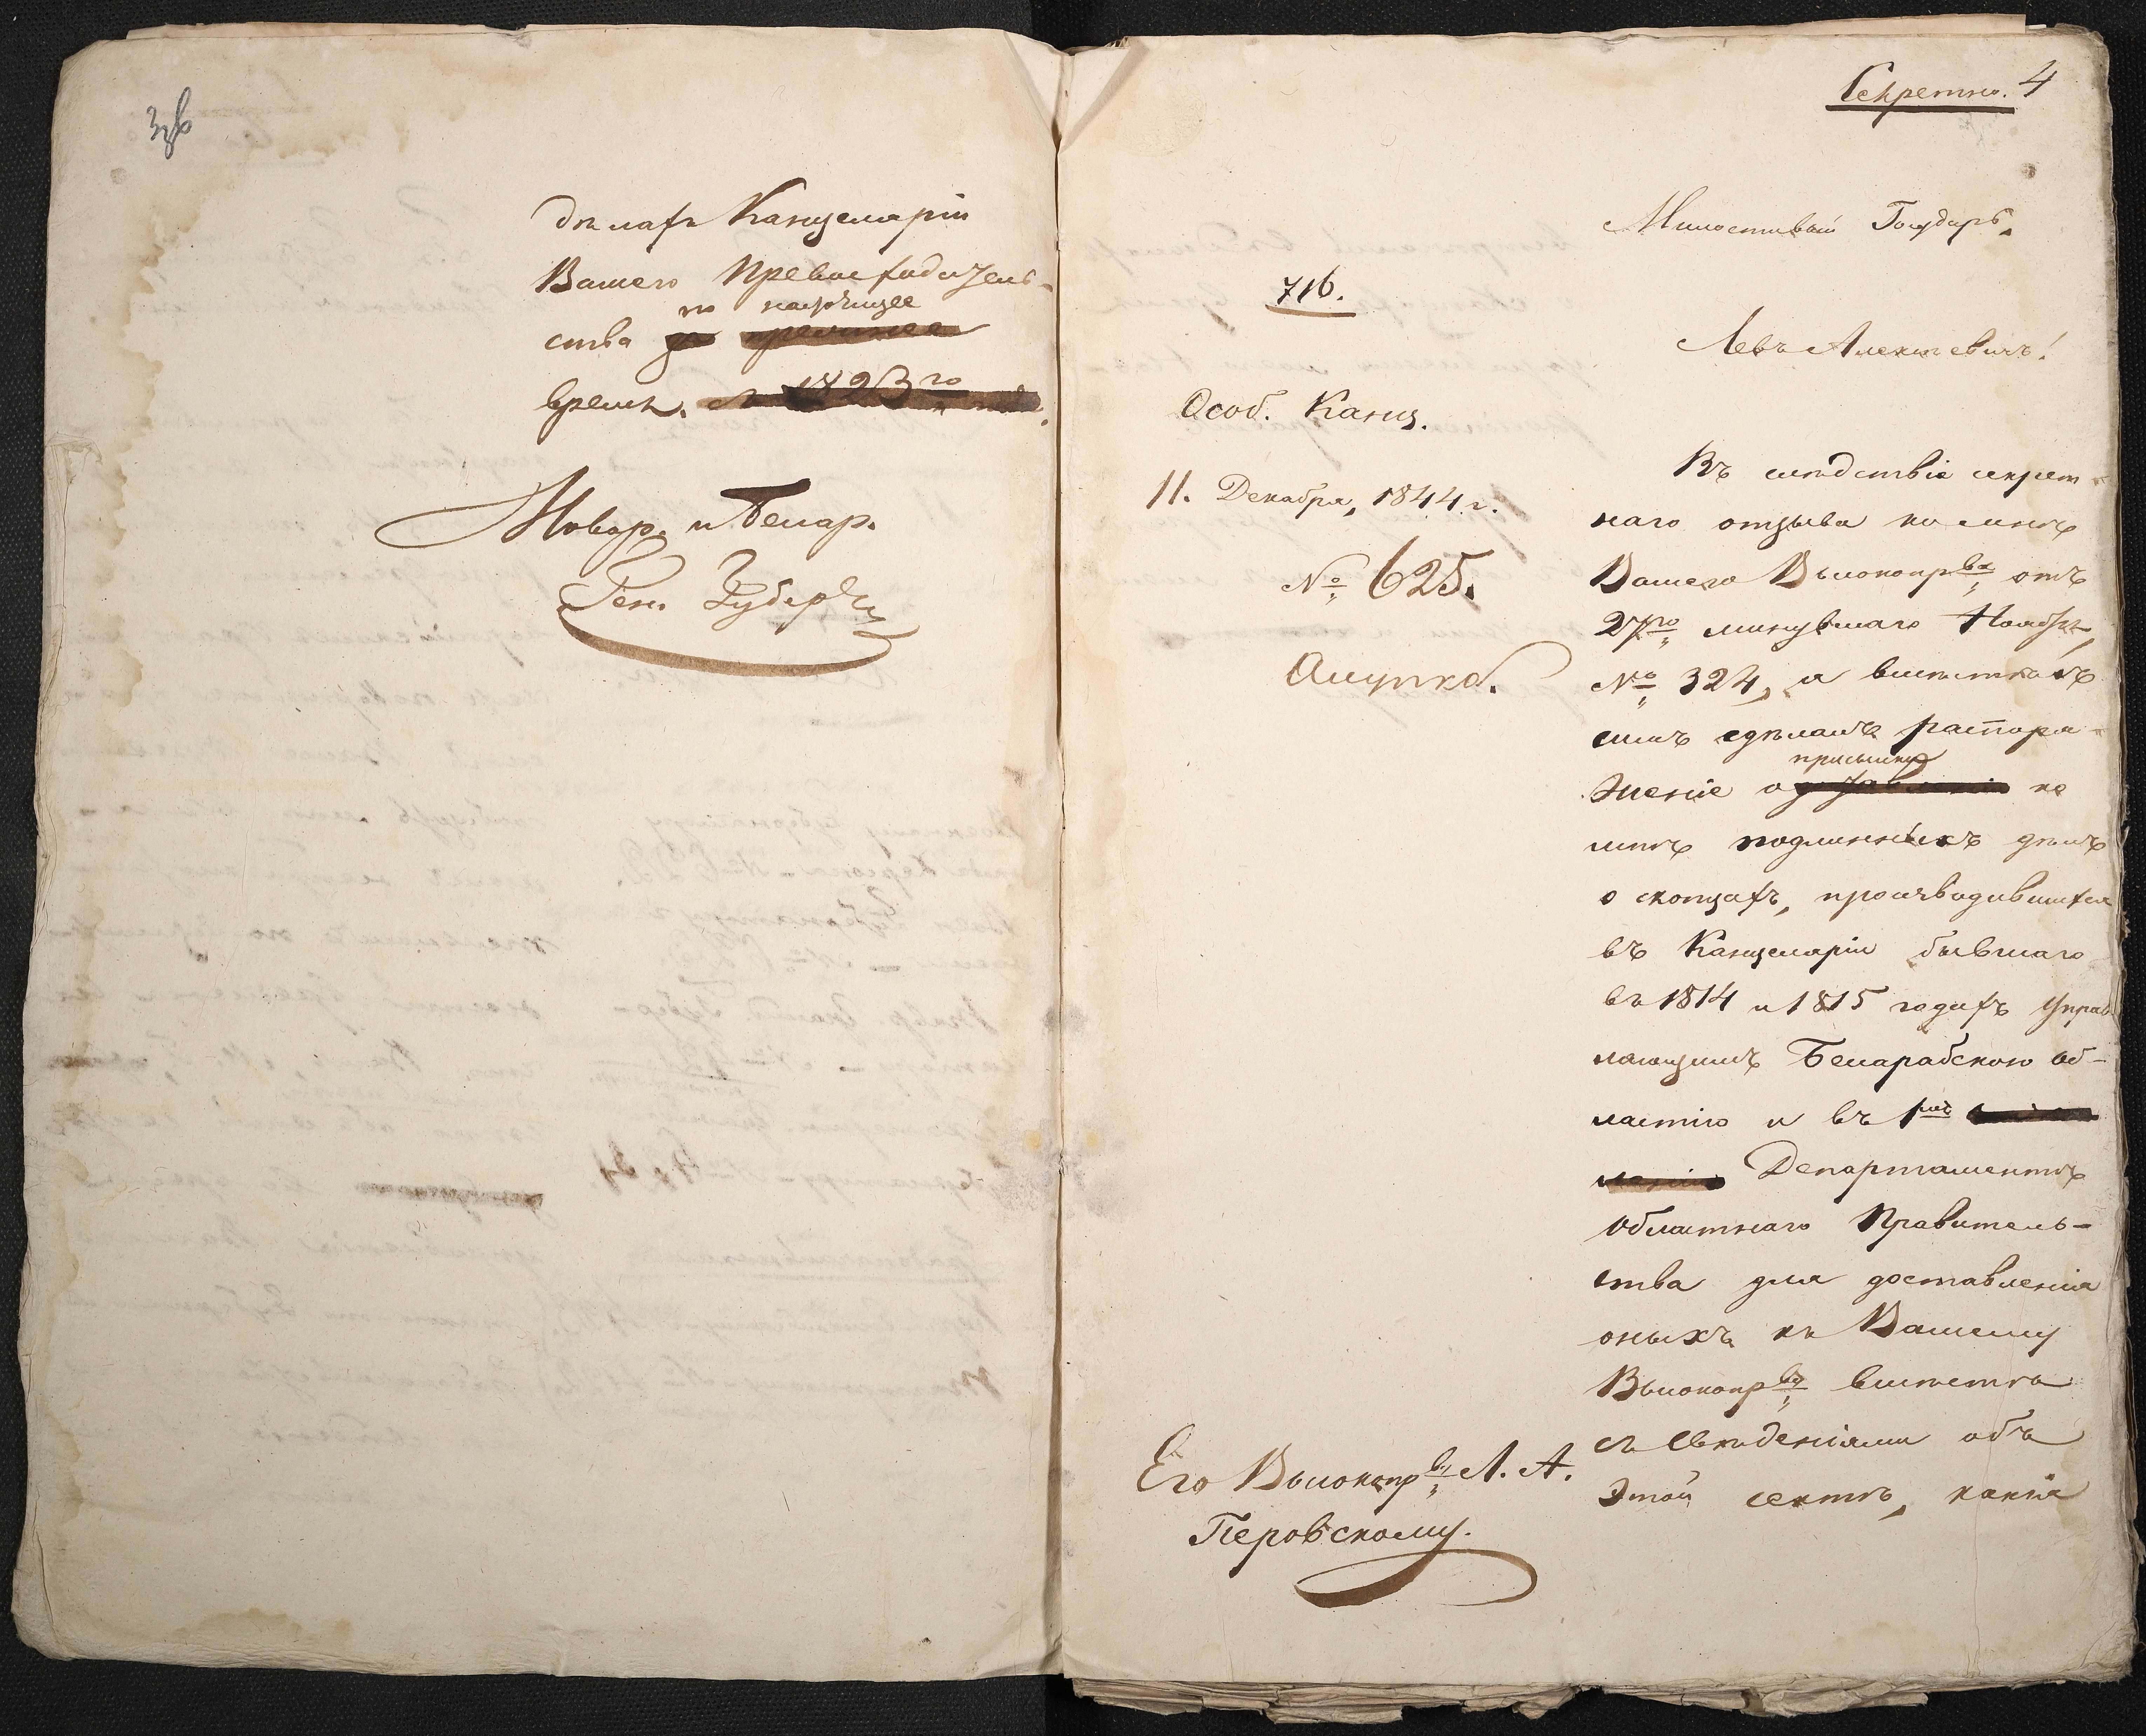 3об
дѣлахъ Канцеляріи
Вашего Превосходитель-
ства по настоящее
время. съ 1823го
Новор. и Бессар.
Ген. Губерн.
Секретно. 4
Милостивый Государь,
Левъ Алексѣевичъ!
716.
Особ. Канц.
11. Декабря, 1844 г.
№ 625.
Алупка.
Въ слѣдствіе секрет-
наго отзыва ко мнѣ
Вашего Высокопрва отъ
27го минувшаго Ноября
№ 324, я вмѣстѣ съ
симъ сдѣлалъ распоря-
присылкѣ
женіе о ко
мнѣ подлинныхъ дѣлъ
о скопцахъ, производившихся
въ Канцеляріи бывшаго
въ 1814 и 1815 годахъ Управ
ляющимъ Бессарабскою Об-
ластію и въ 1мъ
Департаментѣ
Областнаго Правитель-
ства для доставленія
оныхъ къ Вашему
Высокопрву вмѣстѣ
съ свѣденіями объ
этой сектѣ, какія
Его Высокопрву Л. А.
Перовскому.